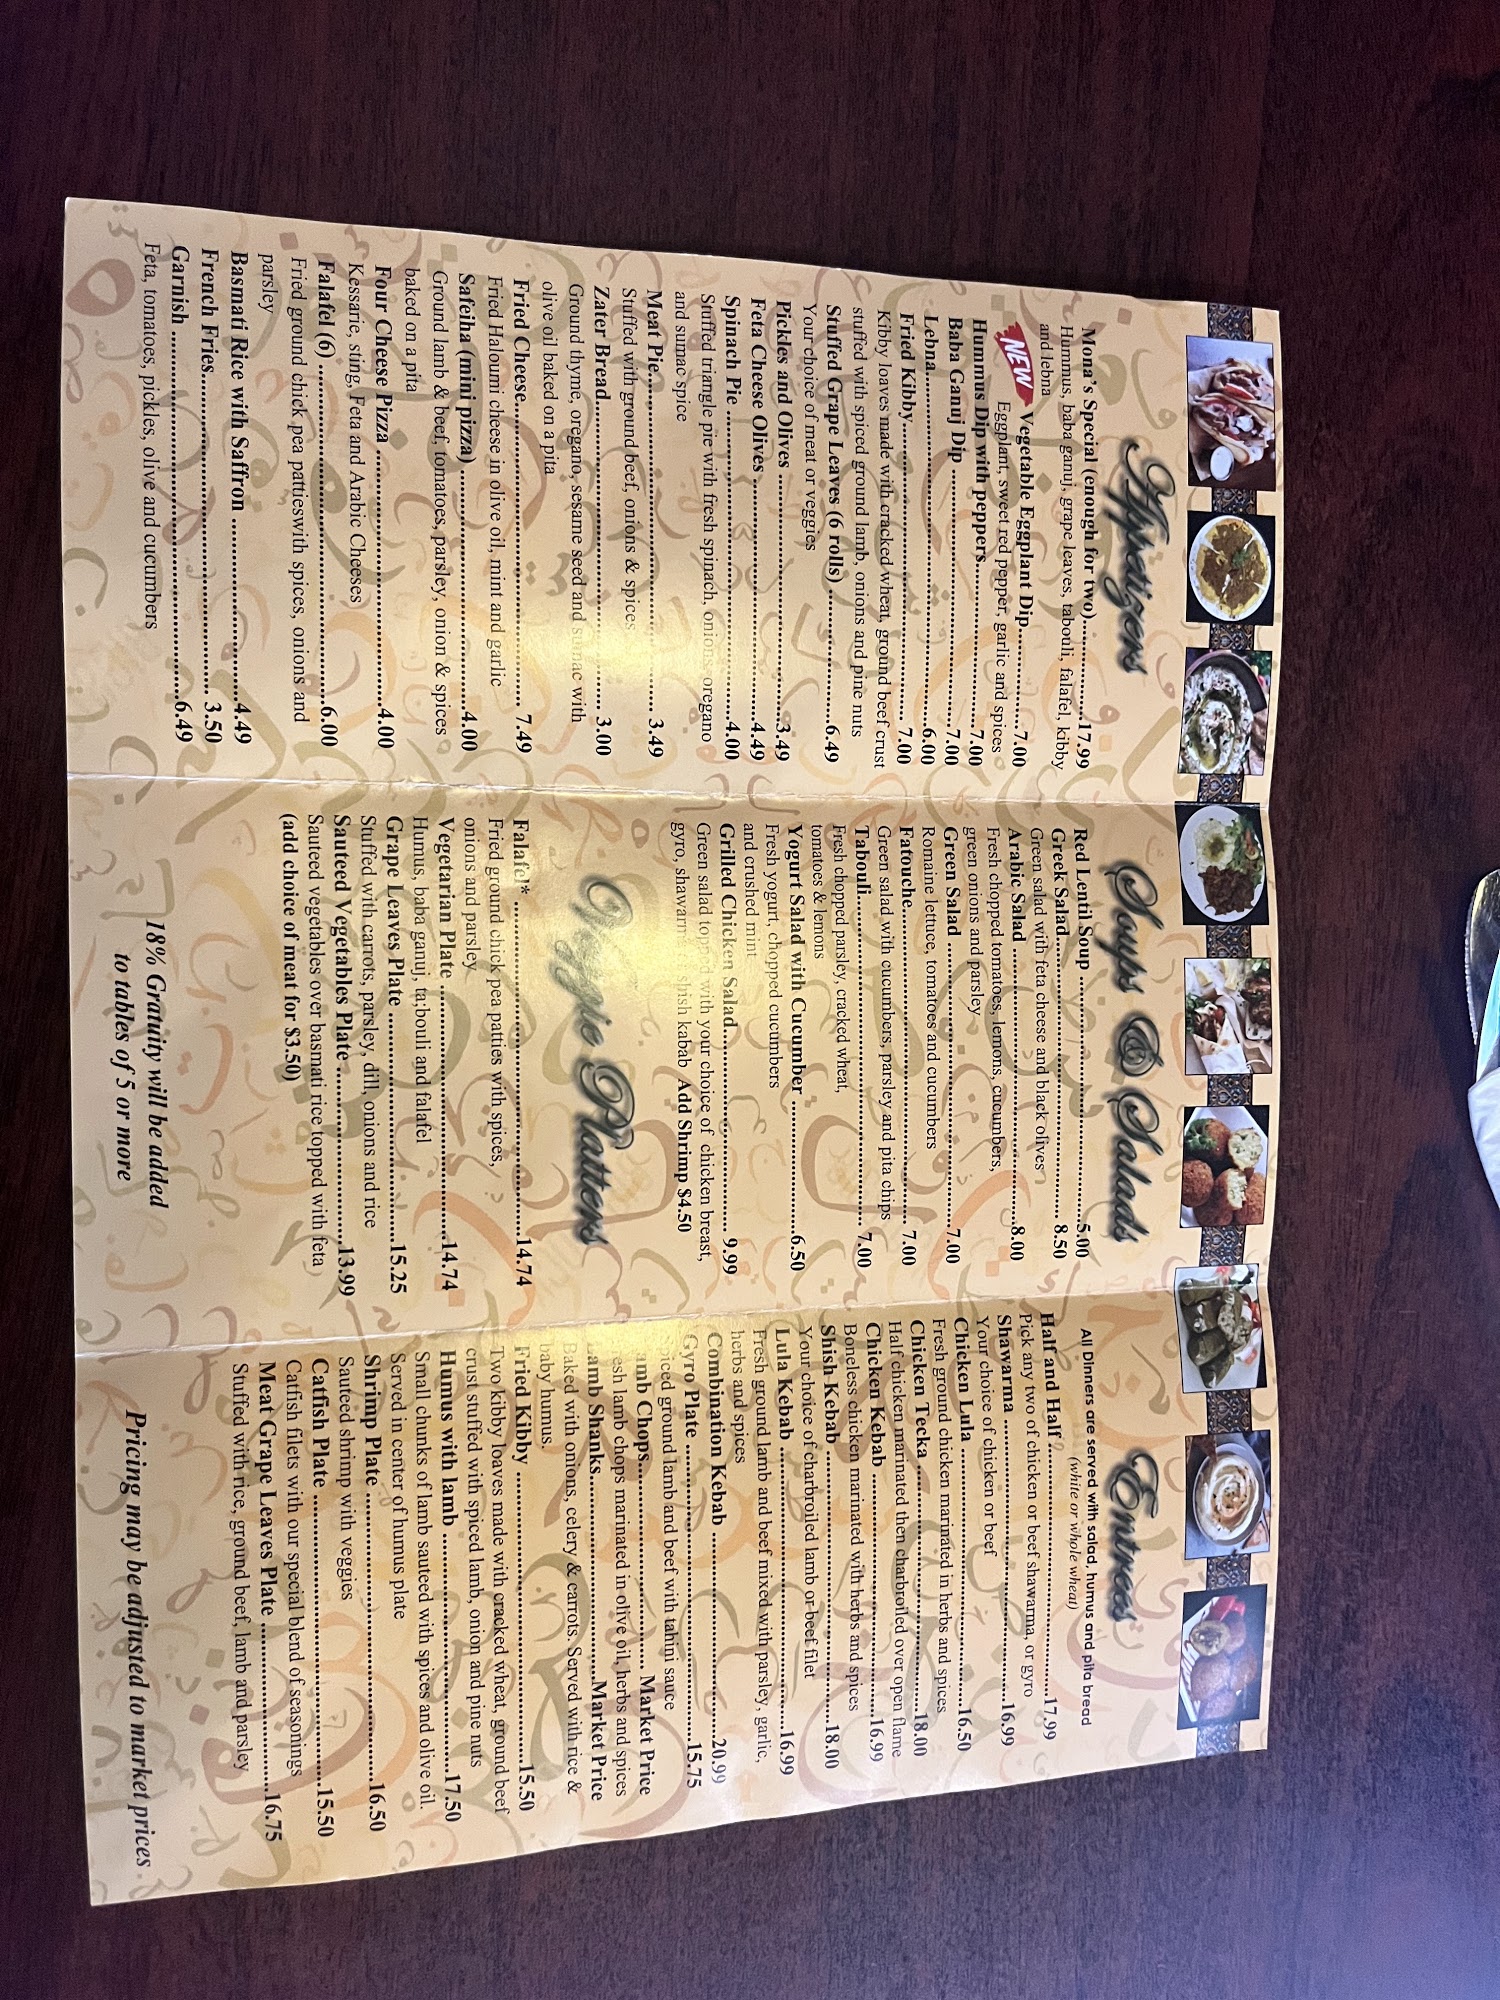 Appetizers
Mona's Special (enough for two)..............17.99
Hummus, baba ganuj, grape leaves, tabouli, falafel, kibby
and lebna
NEW Vegetable Eggplant Dip..............7.00
Eggplant, sweet red pepper, garlic and spices
Hummus Dip with peppers..............7.00
Baba Ganuj Dip ..............7.00
Lebna..............6.00
Fried Kibby.............. 7.00
Kibby loaves made with cracked wheat, ground beef crust
stuffed with spiced ground lamb, onions and pine nuts
Stuffed Grape Leaves (6 rolls) ..............6.49
Your choice of meat or veggies
Pickles and Olives ..............3.49
Feta Cheese Olives ..............4.49
Spinach Pie ..............4.00
Stuffed triangle pie with fresh spinach, onions, oregano
and sumac spice
Meat Pie.............. 3.49
Stuffed with ground beef, onions & spices
Zater Bread.............. 3.00
Ground thyme, oregano, sesame seed and sumac with
olive oil baked on a pita
Fried Cheese.............. 7.49
Fried Haloumi cheese in olive oil, mint and garlic
Safeiha (mini pizza)..............4.00
Ground lamb & beef, tomatoes, parsley, onion & spices
baked on a pita
Four Cheese Pizza ..............4.00
Kessarie, sting, Feta and Arabic Cheeses
Falafel (6) ..............6.00
Fried ground chick pea pattieswith spices, onions and
parsley
Basmati Rice with Saffron ..............4.49
French Fries.............. 3.50
Garnish ..............6.49
Feta, tomatoes, pickles, olive and cucumbers
Soups & Salads
Red Lentil Soup ..............5.00
Greek Salad.............. 8.50
Green salad with feta cheese and black olives
Arabic Salad ..............8.00
Fresh chopped tomatoes, lemons, cucumbers,
green onions and parsley
Green Salad ..............7.00
Romaine lettuce, tomatoes and cucumbers
Fatouche.............. 7.00
Green salad with cucumbers, parsley and pita chips
Tabouli.............. 7.00
Fresh chopped parsley, cracked wheat,
tomatoes & lemons
Yogurt Salad with Cucumber ..............6.50
Fresh yogurt, chopped cucumbers
and crushed mint
Grilled Chicken Salad.............. 9.99
Green salad topped with your choice of chicken breast,
gyro, shawarm shish kabab Add Shrimp $4.50
Veggie Platters
Falafel* ..............14.74
Fried ground chick pea patties with spices,
onions and parsley
Vegetarian Plate ..............14.74
Humus, baba ganuj, ta;bouli and falafel
Grape Leaves Plate ..............15.25
Stuffed with carrots, parsley, dill, onions and rice
Sauteed Vegetables Plate ..............13.99
Sauteed vegetables over basmati rice topped with feta
(add choice of meat for $3.50)
18% Gratuity will be added
to tables of 5 or more
Entrees
All Dinners are served with salad, humus and pita bread
(white or whole wheat)
Half and Half ..............17.99
Pick any two of chicken or beef shawarma, or gyro
Shawarma ..............16.99
Your choice of chicken or beef
Chicken Lula ..............16.50
Fresh ground chicken marinated in herbs and spices
Chicken Tecka ..............18.00
Half chicken marinated then charbroiled over open flame
Chicken Kebab ..............16.99
Boneless chicken marinated with herbs and spices
Shish Kebab ..............18.00
Your choice of charbroiled lamb or beef filet
Lula Kebab ..............16.99
Fresh ground lamb and beef mixed with parsley, garlic,
herbs and spices
Combination Kebab ..............20.99
Gyro Plate ..............15.75
Spiced ground lamb and beef with tahini sauce
Lamb Chops.............. Market Price
Fresh lamb chops marinated in olive oil, herbs and spices
Lamb Shanks..............Market Price
Baked with onions, celery & carrots. Served with rice &
baby humus.
Fried Kibby ..............15.50
Two kibby loaves made with cracked wheat, ground beef
crust stuffed with spiced lamb, onion and pine nuts
Humus with lamb ..............17.50
Small chunks of lamb sauteed with spices and olive oil.
Served in center of humus plate
Shrimp Plate ..............16.50
Sauteed shrimp with veggies
Catfish Plate ..............15.50
Catfish filets with our special blend of seasonings
Meat Grape Leaves Plate ..............16.75
Stuffed with rice, ground beef, lamb and parsley
Pricing may be adjusted to market prices.